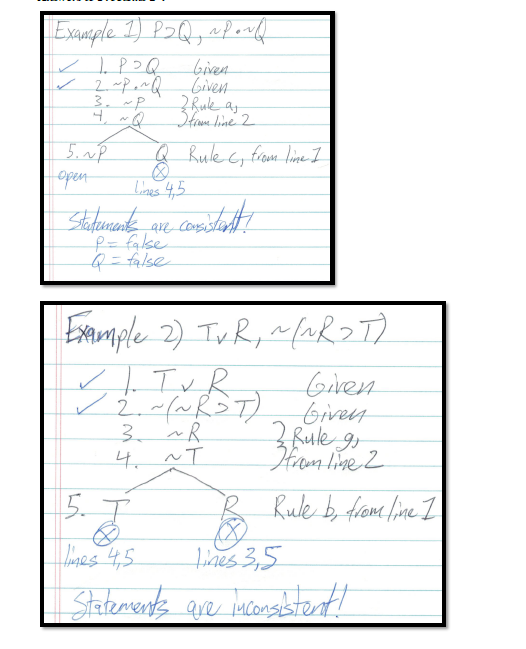 Example 1) P⊃Q, ~P•~Q
✓ 1. P⊃Q Given
✓ 2. ~P•~Q Given
3. ~P } Rule a,
4. ~Q } from line 2
5. ~P Q Rule c, from line 1
open ⊗
lines 4,5
Statements are consistent!
P = false
Q = false
Example 2) T∨R, ~(~R⊃T)
✓ 1. T∨R Given
✓ 2. ~(~R⊃T) Given
3. ~R } Rule g,
4. ~T } from line 2
5. T R Rule b, from line 1
⊗ ⊗
lines 4,5 lines 3,5
Statements are inconsistent!